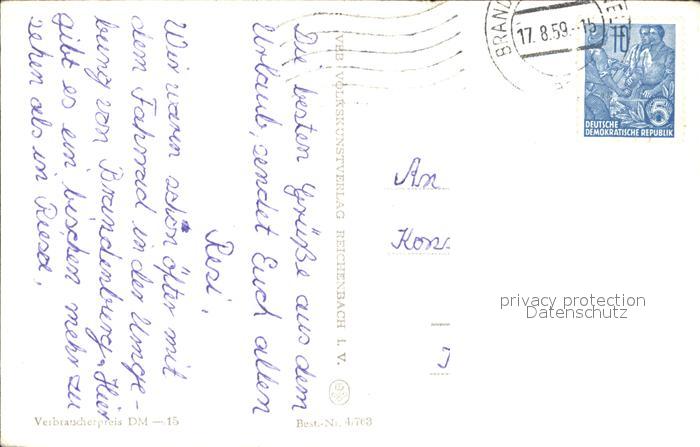 Die besten Grüße aus dem
Urlaub, sendet Euch allen
Resi.
Wir waren schon öfter mit
dem Fahrrad in der Umge-
bung von Brandenburg. Hier
gibt es ein bischen mehr zu
sehen als in Riesa.
VEB VOLKSKUNSTVERLAG REICHENBACH I. V.
Verbraucherpreis DM —.15
Best.-Nr. 4/763
BRAND
17.8.59.-15
10
5
DEUTSCHE
DEMOKRATISCHE REPUBLIK
An
Kon
privacy protection
Datenschutz